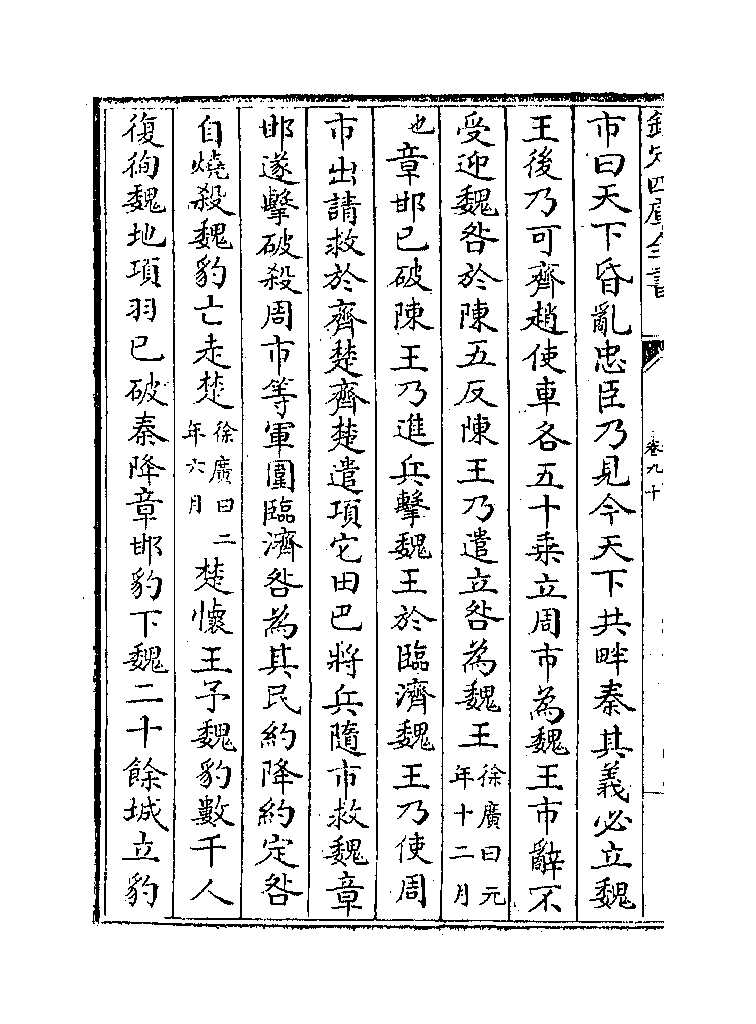 欽定四庫全書
卷九十
市曰天下昏亂忠臣乃見今天下共畔秦其義必立魏
王後乃可齊趙使車各五十乗立周市為魏王市辭不
受迎魏咎於陳五反陳王乃遣立咎為魏王徐廣曰元年十二月
也章邯已破陳王乃進兵擊魏王於臨濟魏王乃使周
市出請救於齊楚齊楚遣項它田巴將兵隨市救魏章
邯遂擊破殺周市等軍圍臨濟咎為其民約降約定咎
自燒殺魏豹亡走楚徐廣曰二年六月楚懷王予魏豹數千人
復徇魏地項羽已破秦降章邯豹下魏二十餘城立豹